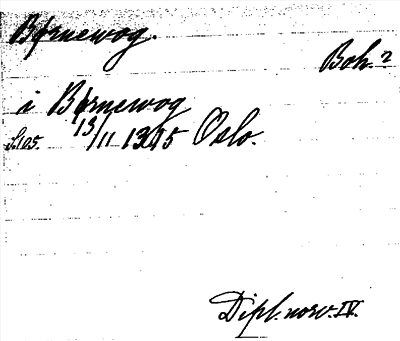 Børnewog.
Boh. 2
i Børnewog
S. 105. 13/11 1345 Oslo.
Dipl. norv. IV.